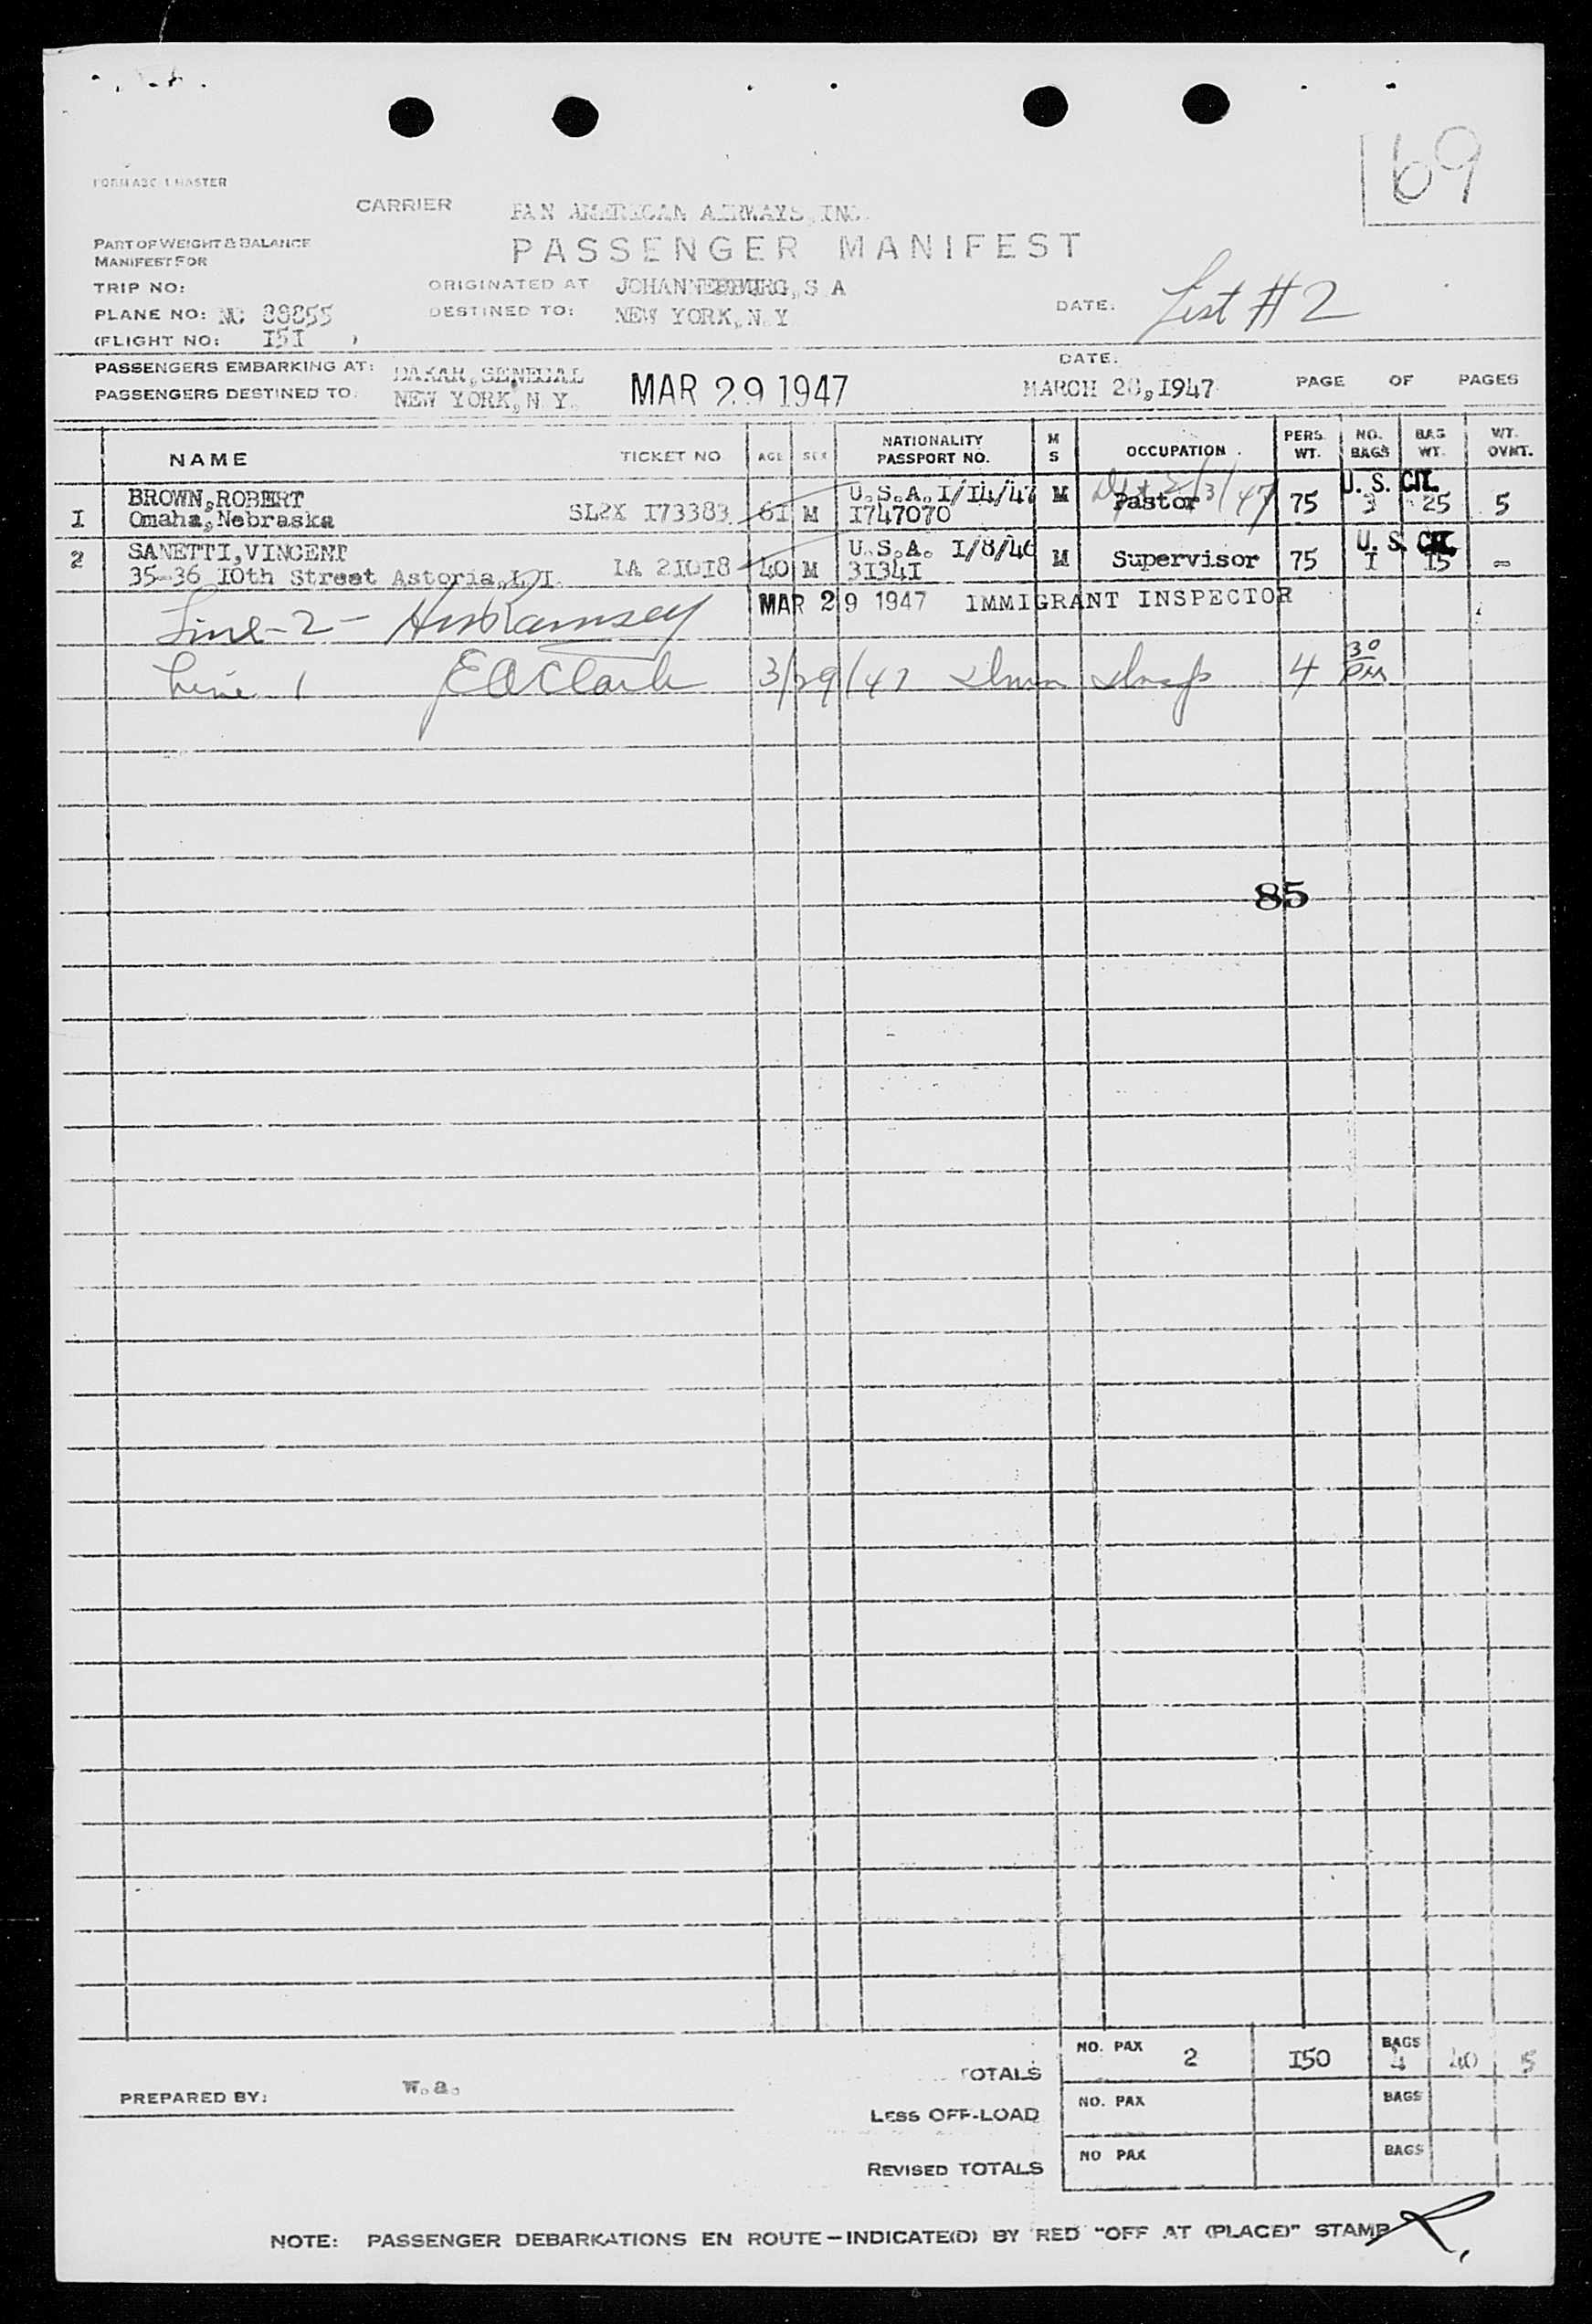 69
FORM ABC 1 MASTER
CARRIER PAN AMERICAN AIRWAYS, INC.
PART OF WEIGHT & BALANCE
MANIFEST FOR
PASSENGER MANIFEST
TRIP NO: ORIGINATED AT JOHANNESBURG, S A
PLANE NO: NC 88855 DESTINED TO: NEW YORK, N. Y DATE: List #2
(FLIGHT NO: I5I )
PASSENGERS EMBARKING AT: DAKAR, SENEGAL DATE:
PASSENGERS DESTINED TO: NEW YORK, N. Y. MAR 29 1947 MARCH 28, 1947 PAGE OF PAGES
NAME TICKET NO AGE SEX NATIONALITY PASSPORT NO. M S OCCUPATION PERS. WT. NO. BAGS BAG WT. WT. OVNT.
1 BROWN, ROBERT SL2X I73383 6I M U.S.A. I/I4/47 M Pastor 75 3 25 5 U. S. CIT.
Omaha, Nebraska I747070
2 SANETTI, VINCENT IA 2I0I8 40 M U.S.A. I/8/46 M Supervisor 75 I I5 - U. S. CIT.
35-36 I0th Street Astoria, L.I. 3I34I
Line-2- Ramsey MAR 29 1947 IMMIGRANT INSPECTOR
Line 1 E A Clark 3/29/47 4 30 PM
85
TOTALS NO. PAX 2 I50 BAGS 4 40 5
PREPARED BY: w.a.
LESS OFF-LOAD NO. PAX BAGS
REVISED TOTALS NO PAX BAGS
NOTE: PASSENGER DEBARKATIONS EN ROUTE—INDICATE(D) BY RED "OFF AT (PLACE)" STAMP